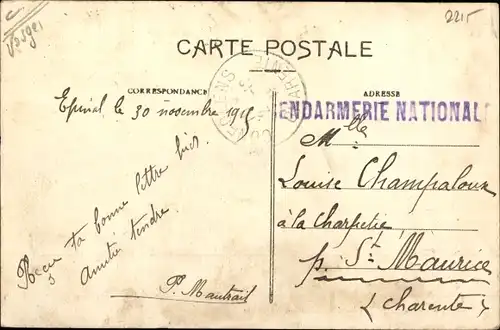 2215
CARTE POSTALE
CORRESPONDANCE
ADRESSE
CONFOLENS
CHARENTE
GENDARMERIE NATIONAL
Epinal, le 30 novembre 1915
Reçu ta bonne lettre hier.
Amitié tendre.
P. Mautrait
Mlle
Louise Champaloux
à la Charpetie,
p. St Maurice
(Charente)